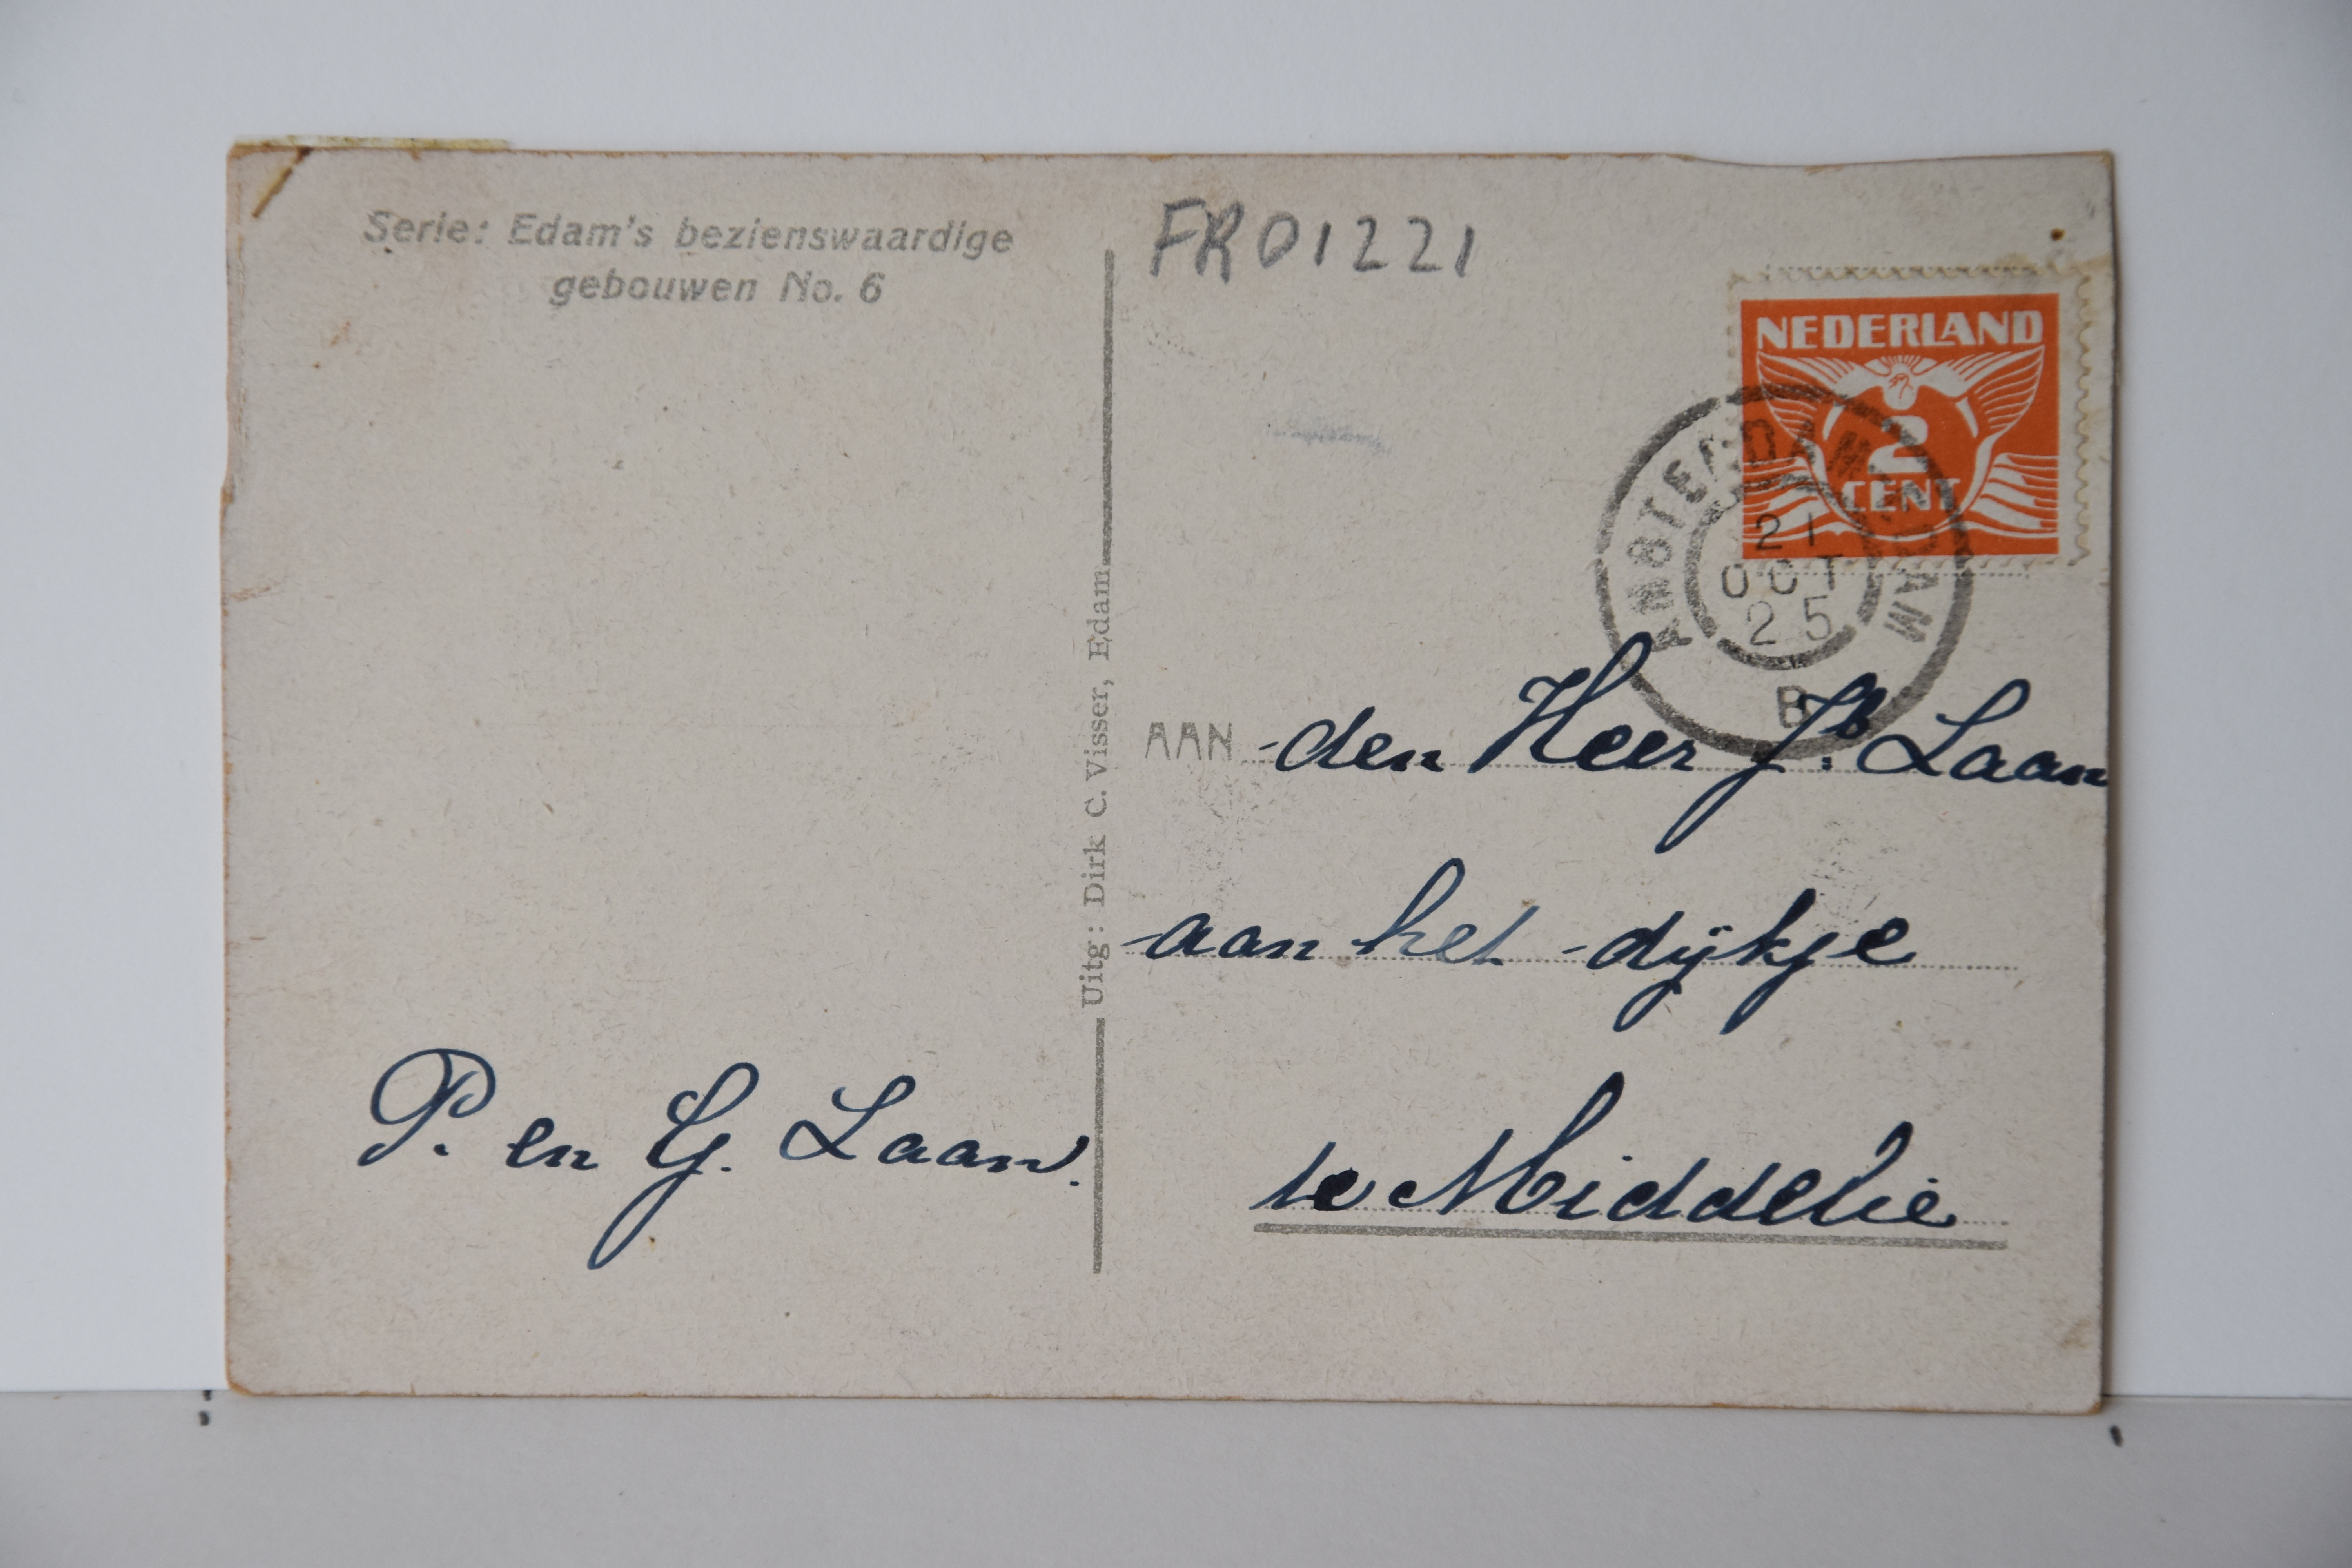 Serie: Edam's bezienswaardige
gebouwen No. 6
P. en G. Laan.
Uitg: Dirk C. Visser, Edam
FR01221
NEDERLAND
2
CENT
21
OCT
25
B
AAN den Heer Jb. Laan
aan het dijkje
te Middelie